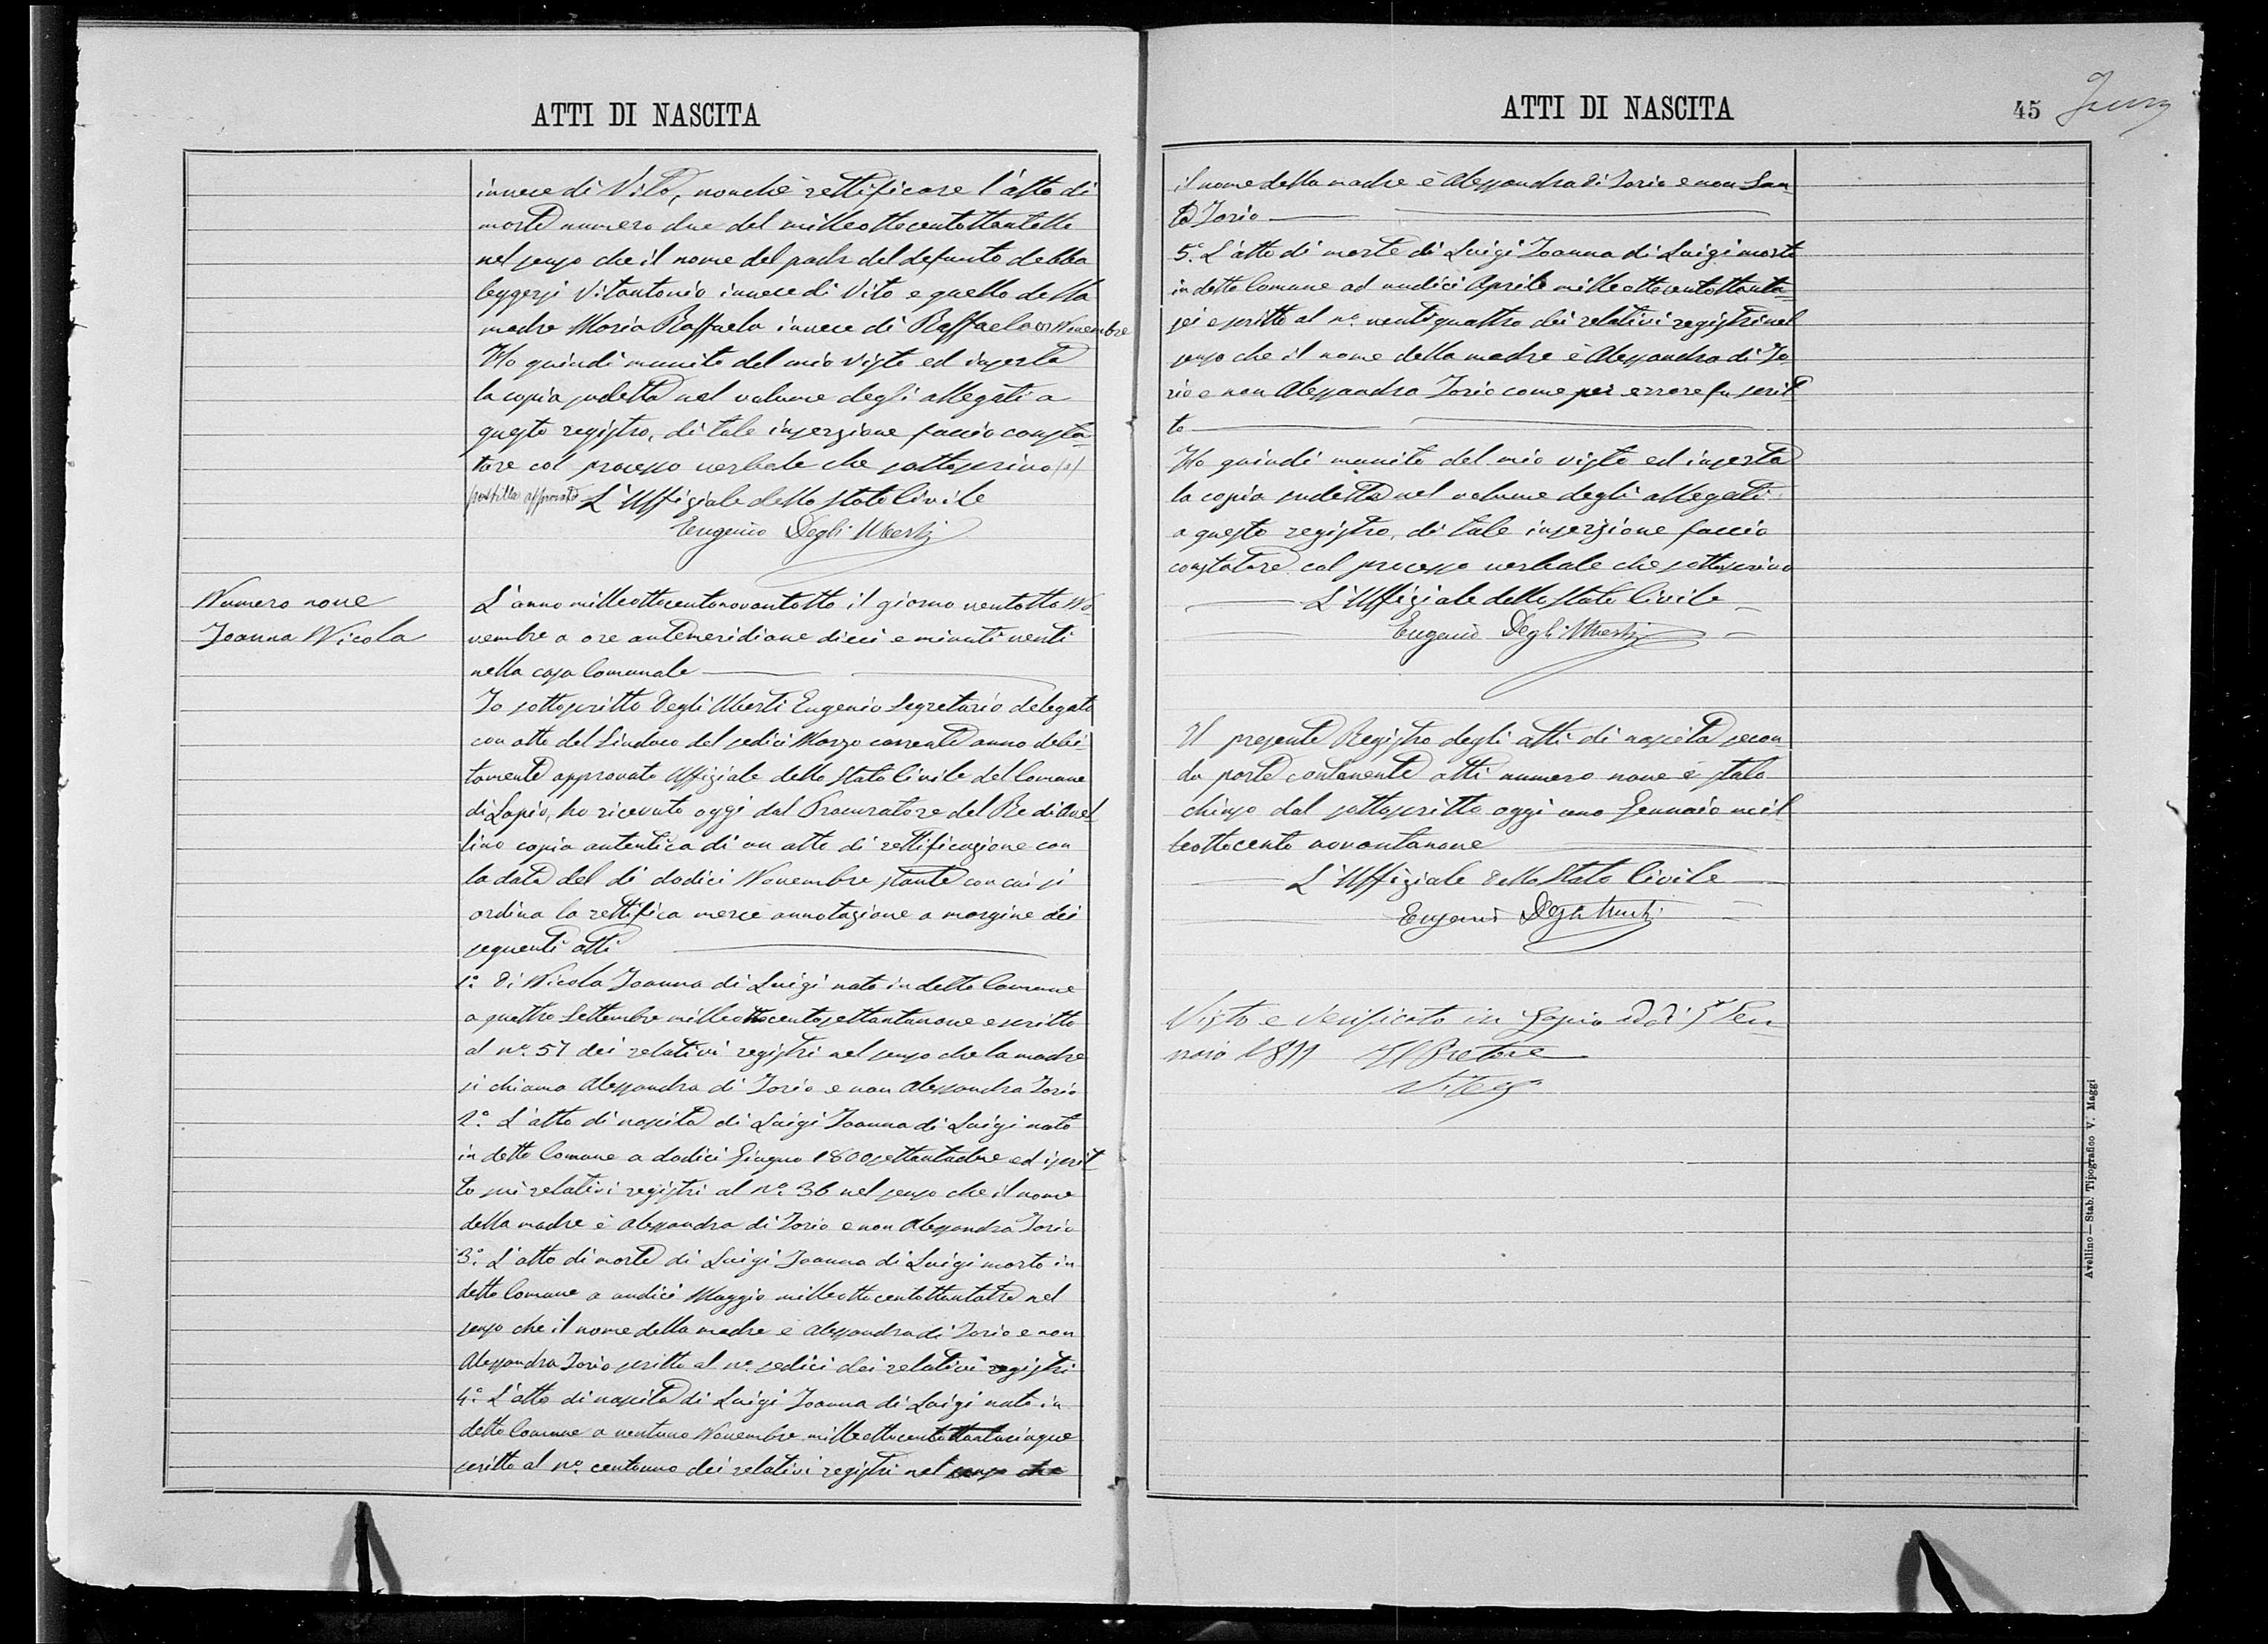 ATTI DI NASCITA
invece di Vito, nonché rettificare l'atto di
morte numero due del milleottocentottantotto
nel senso che il nome del padre del defunto debba
leggersi Vitantonio invece di Vito e quello della
madre Maria Raffaela invece di Raffaela Novembre
Ho quindi munito del mio visto ed inserta
la copia sudetta nel volume degli allegati a
questo registro, di tale inserzione faccio consta-
tare col processo verbale che sottoscrivo (a)
postilla approvata L'Uffiziale dello Stato Civile
Eugenio Degli Uberti
Numero nove
Joanna Nicola
L'anno milleottocentonovantotto il giorno ventotto No
vembre a ore antemeridiane dieci e minuti venti
nella casa Comunale
Io sottoscritto Degli Uberti Eugenio Segretario delegato
con atto del Sindaco del sedici Marzo corrente anno debi-
tamente approvato Uffiziale dello Stato Civile del Comune
di Lapio, ho ricevuto oggi dal Procuratore del Re di Avel
lino copia autentica di un atto di rettificazione con
la data del di dodici Novembre stante con cui si
ordina la rettifica merce annotazione a margine dei
seguenti atti
1º. Di Nicola Joanna di Luigi nato in detto Comune
a quattro Settembre milleottocentosettantanove e scritto
al nº. 57 dei relativi registri nel senso che la madre
si chiama Alessandra di Iorio e non Alessandra Iorio
2º. L'atto di nascita di Luigi Joanna di Luigi nato
in detto Comune a dodici Giugno 1800settantadue ed iscrit
to sui relativi registri al Nº. 36 nel senso che il nome
della madre è Alessandra di Iorio e non Alessandra Iorio
3º. L'atto di morte di Luigi Joanna di Luigi morto in
detto Comune a undici Maggio milleottocentottantatre nel
senso che il nome della madre è Alessandra di Iorio e non
Alessandra Iorio scritto al nº. sedici dei relativi registri
4º. L'atto di nascita di Luigi Joanna di Luigi nato in
detto Comune a ventuno Novembre milleottocentottantacinque
scritto al nº. centouno dei relativi registri nel senso che
ATTI DI NASCITA
45
il nome della madre è Alessandra di Iorio e non San
ta Iorio
5º. L'atto di morte di Luigi Joanna di Luigi morto
in detto Comune ad undici Aprile milleottocentottanta-
sei e scritto al nº. ventiquattro dei relativi registri nel
senso che il nome della madre è Alessandra di Io
rio e non Alessandra Iorio come per errore fu scrit
to
Ho quindi munito del mio visto ed inserta
la copia sudetta nel volume degli allegati
a questo registro, di tale inserzione faccio
constatare col processo verbale che sottoscrivo
L'Uffiziale dello Stato Civile
Eugenio Degli Uberti
Il presente Registro degli atti di nascita secon
da parte contenente atti numero nove è stato
chiuso dal sottoscritto oggi uno Gennaio mil
leottocento novantanove
L'Uffiziale dello Stato Civile
Eugenio Degli Uberti
Visto e verificato in Lapio addi 5 Gen
naio 1899 Il Pretore
Avellino — Stab. Tipografico V. Maggi